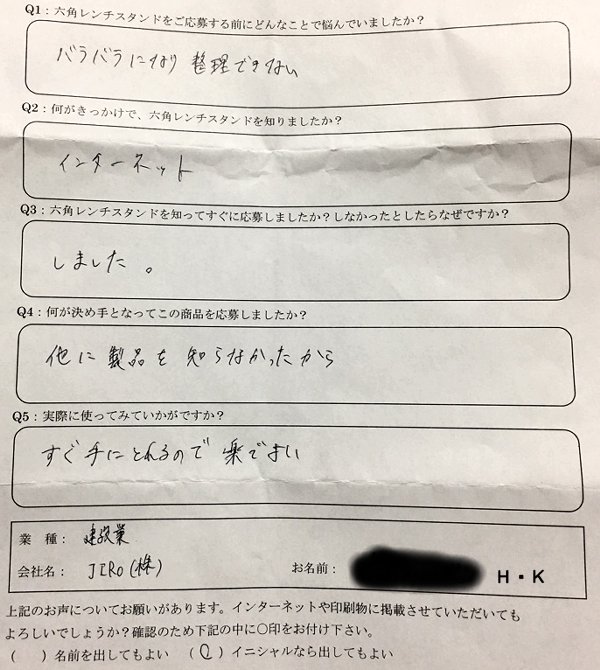 Q1：六角レンチスタンドをご応募する前にどんなことで悩んでいましたか？
バラバラになり整理できない
Q2：何がきっかけで、六角レンチスタンドを知りましたか？
インターネット
Q3：六角レンチスタンドを知ってすぐに応募しましたか？しなかったとしたらなぜですか？
しました。
Q4：何が決め手となってこの商品を応募しましたか？
他に製品を知らなかったから
Q5：実際に使ってみていかがですか？
すぐ手にとれるので楽でよい
業　種：建設業
会社名：JIRO(株)　お名前：　H・K
上記のお声についてお願いがあります。インターネットや印刷物に掲載させていただいても
よろしいでしょうか？確認のため下記の中に〇印をお付け下さい。
(　) 名前を出してもよい　(〇) イニシャルなら出してもよい